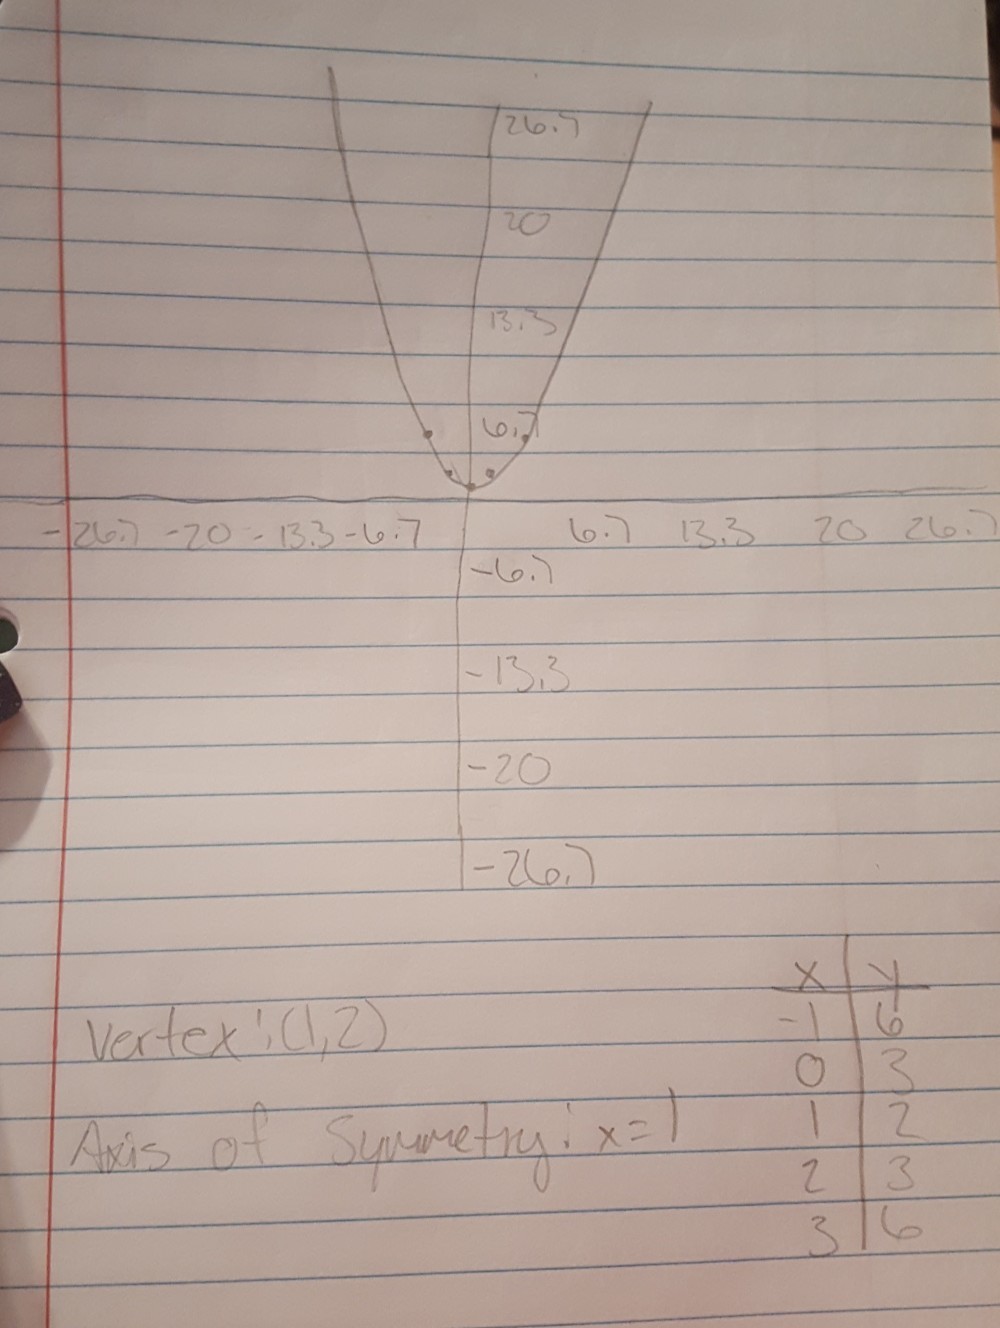 26.7
20
13.3
6.7
-26.7 -20 -13.3 -6.7 6.7 13.3 20 26.7
-6.7
-13.3
-20
-26.7
x y
-1 6
Vertex: (1,2)
0 3
1 2
Axis of Symmetry: x=1
2 3
3 6